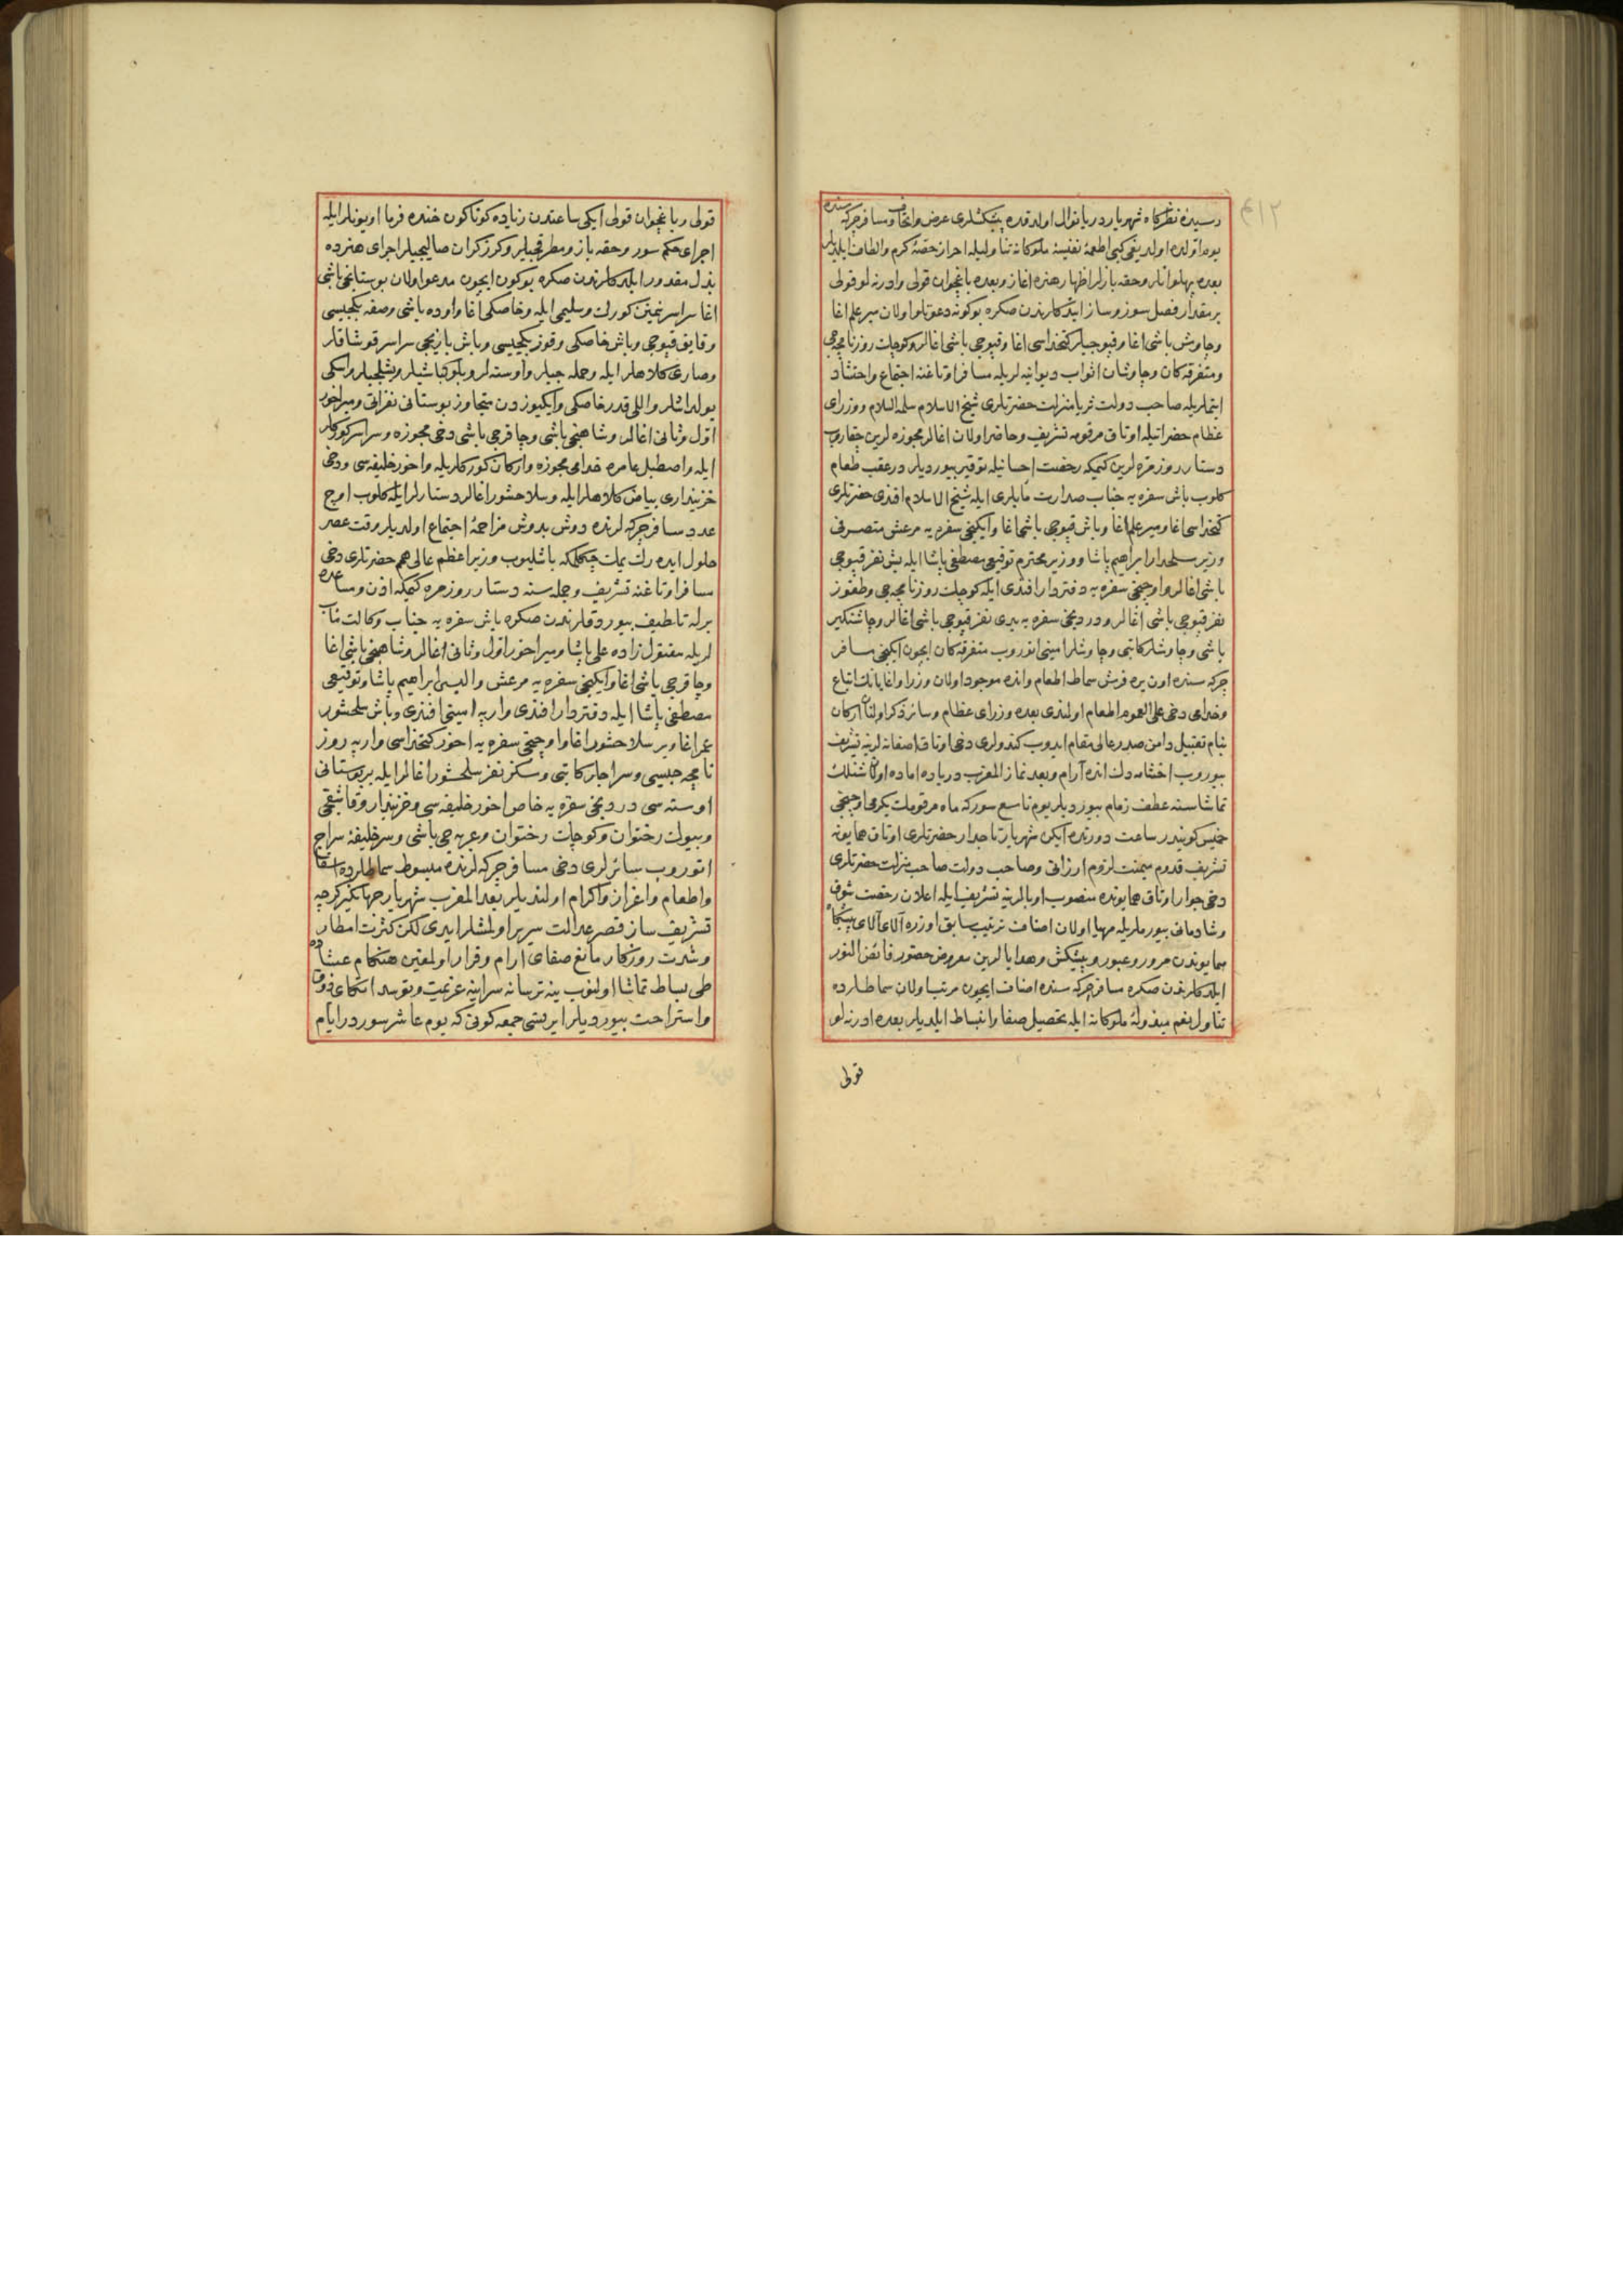 رسیدهٔ نظرکاه شهریار دریا نوال اولدقده پیشکشلری عرض واتحاف ومسافر چرکه سنده
یوم اولده اولدیغی کبی اطعمهٔ نفیسهٔ ملوکانه تناولیله احراز حصهٔ کرم والطاف ایلدیلر
بعده پهلوانلر وحقه بازلر اظهار هنره اغاز وبعده باغچوان قولی وادرنه لو قولی
بر مقدار فصل سوز وساز ایتدکلرندن صکره بوکونه دعوتلو اولان میر علم اغا
وچاوش باشی اغا وقپوجیلر کتخداسی اغا وقپوجی باشی اغالر وکوچك روزنامچه جی
ومتفرقه کان وچاوشان اثواب دیوانیه لریله مسافر اوتاغنه اجتماع واحتشاد
ایتملریله صاحب دولت ثریا منزلت حضرتلری شیخ الاسلام سلمه السلام ووزرای
عظام حضراتیله اوتاق مرقومه تشریف وحاضر اولان اغالر مجوزه لرین چقاروب
دستار روزمره لرین کیمکه رخصت احسانیله توقیر بیوردیلر درعقب طعام
کلوب باش سفره یه جناب صدارت مآبلری ایله شیخ الاسلام افندی حضرتلری
کتخداسی اغا ومیر علم اغا وباش قپوجی باشی اغا وایکنجی سفره یه مرعش متصرفی
وزیر سلحدار ابراهیم پاشا ووزیر محترم توقیعی مصطفی پاشا ایله بش نفر قپوجی
باشی اغالر واوچنجی سفره یه دفتردار افندی ایله کوچك روزنامچه جی وطقوز
نفر قپوجی باشی اغالر ودردنجی سفره یه یدی نفر قپوجی باشی اغالر وچاشنکیر
باشی وچاوشلر کاتبی وچاوشلر امینی اتوروب متفرقه کان ایچون ایکنجی مسافر
چرکه سنده اون یره فرش سماط اطعام واندە موجود اولان وزرا واغایانك اتباع
وخدامی دخی علی العموم اطعام اولندی بعده وزرای عظام وسائر ذکر اولنان ارکان
بنام تقبیل دامن صدر عالی مقام ایدوب کندولری دخی اوتاق اصفانه لرینه تشریف
بیوروب اخشامه دك انده آرام وبعد نماز المغرب دریاده اماده اولان شنلك
تماشاسنه عطف زمام بیوردیلر یوم تاسع سورکه ماه مرقومك یکرمی اوچنجی
خمیس کونیدر ساعت دورتده ایکن شهریار تاجدار حضرتلری اوتاق همایونه
تشریف قدوم میمنت لزوم ارزانی وصاحب دولت صاحب منزلت حضرتلری
دخی جوار اوتاق همایونده منصوب اوبالرینه تشریف ایله اعلان رخصت شوق
وشادمانی بیورملریله مهیا اولان اصناف ترتیب سابق اوزره آلای آلای پیشکاه
همایوندن مرور وعبور وپیشکش وهدایالرین معروض حضور فائض النور
ایلدکلرندن صکره مسافر چرکه سنده اصناف ایچون مرتب اولان سماطلرده
تناول نعم مبذولهٔ ملوکانه ایله تحصیل صفا وانبساط ایلدیلر بعده ادرنه لو
قولی
قولی وباغچوان قولی ایکی ساعتدن زیاده کوناکون خنده فرما اویونلر ایله
اجرای حکم سور وحقه باز ومطرقجیلر وکرزکران صالیجیلر اجرای هنرده
بذل مقدور ایلدکلرندن صکره بوکون ایچون مدعو اولان بوستانجی باشی
اغا سراسر ثمین کورك وسلیمی ایله وخاصکی اغا واوده باشی وصفه بکجیسی
وقایق قپوجی وباش خاصکی وقوز بکجیسی وباش یازیجی سراسر قوشاقلر
وصاری کلاهلر ایله وحمله جیلر واوسته لر وبلوکباشیلر وبشلیجیلر واسکی
یولداشلر واللی قدر خاصکی وایکیوزدن متجاوز بوستانی نفراتی ومیراخور
اول وثانی اغالر وشاهنجی باشی وچاقرجی باشی دخی مجوزه وسراسر کورکلر
ایله واصطبل عامره خدامی مجوزه وارکان کورکلریله واخور خلیفه سی ودخی
خزینه داری بیاض کلاهلر ایله وسلاحشور اغالر دستارلر ایله کلوب اوچ
عدد مسافر چرکه لرنده دوش بدوش مزاحمهٔ اجتماع اولدیلر وقت عصر
حلول ایدەرك یمك چکلمکه باشلیوب وزیر اعظم عالی همم حضرتلری دخی
مسافر اوتاغنه تشریف وجمله سنه دستار روزمره کیمکه اذن ومساعده
برله تلطیف بیوردقلرندن صکره باش سفره یه جناب وکالت مآب
لریله مقتول زاده علی پاشا ومیراخور اول وثانی اغالر وشاهنجی باشی اغا
وچاقرجی باشی اغا وایکنجی سفره یه مرعش والیسی ابراهیم پاشا وتوقیعی
مصطفی پاشا ایله دفتردار افندی وارپه امینی افندی وباش سلحشور
عمر اغا وبر سلاحشور اغا واوچنجی سفره یه اخور کتخداسی وارپه روز
نامچه جیسی وسراجلر کاتبی وسکز نفر سلحشور اغالر ایله بر بوستانی
اوسته سی دردنجی سفره یه خاص اخور خلیفه سی وخزینه دار وقاشیقجی
وبیوك رختوان وکوچك رختوان وعربه جی باشی وسرخلیفهٔ سراج
اتوروب سائرلری دخی مسافر چرکه لرنده مبسوط سماطلرده استقا
واطعام واعزاز واکرام اولندیلر بعد المغرب شهریار جهانکیر کرچه
تشریف ساز قصر عدالت سریر اولمشلر ایدی لکن کثرت امطار
وشدت روزکار مانع صفای آرام وقرار اولمغین هنکام عشاده
طی بساط تماشا اولنوب ینه ترسانه سراینه عزیمت
واستراحت بیوردیلر ایرتسی جمعه کونی که یوم عاشر سوردر ایام